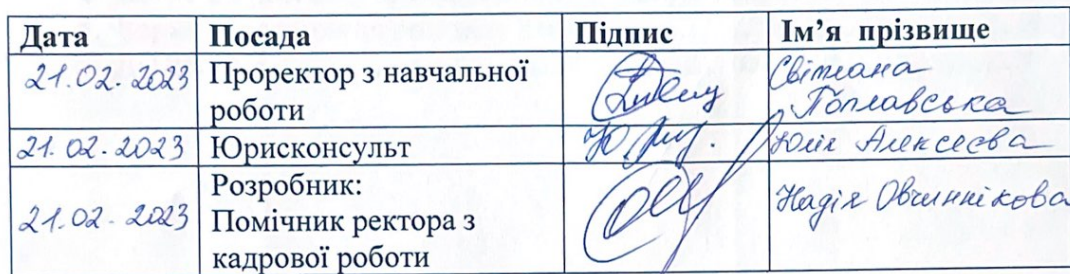 Дата Посада Підпис Ім’я прізвище
21.02.2023 Проректор з навчальної роботи Світлана Поплавська
21.02.2023 Юрисконсульт Юлія Алексєєва
21.02.2023 Розробник: Помічник ректора з кадрової роботи Надія Овчиннікова